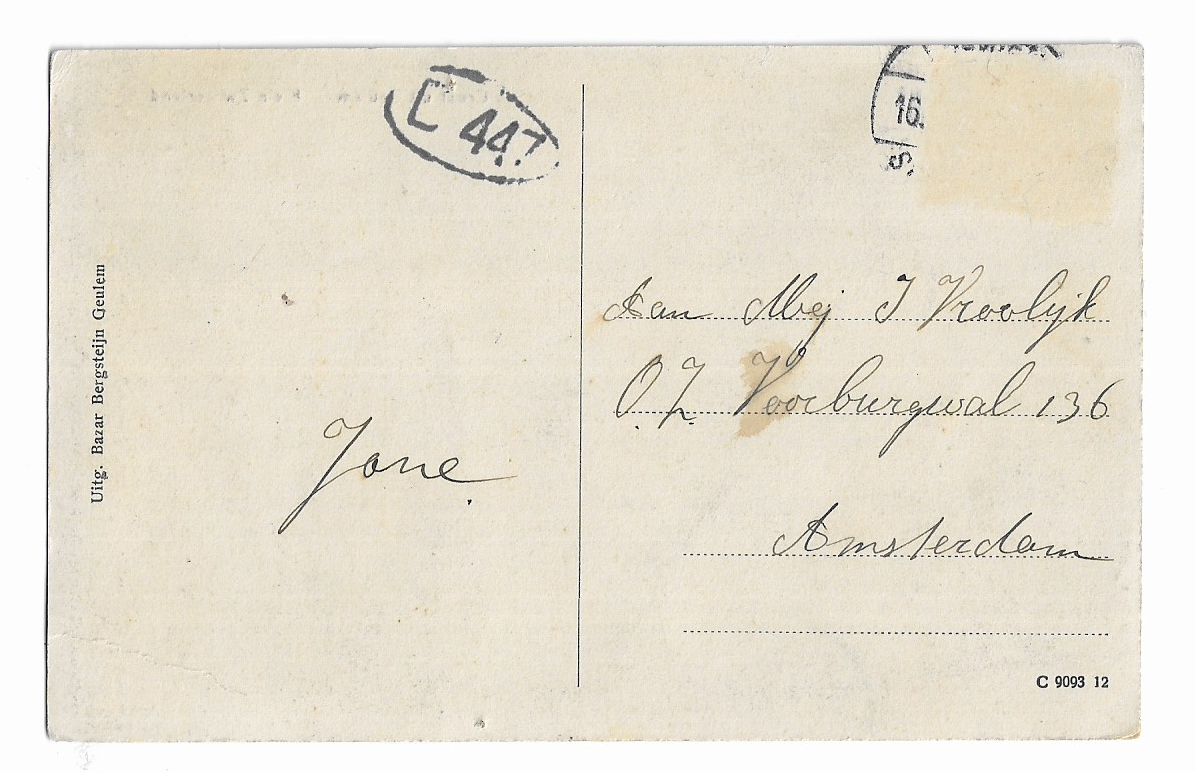 L 447
16.
S.
Uitg. Bazar Bergsteijn Geulem
Jane.
Aan Mej J Vroolijk
O.Z. Voorburgwal 136
Amsterdam
C 9093 12